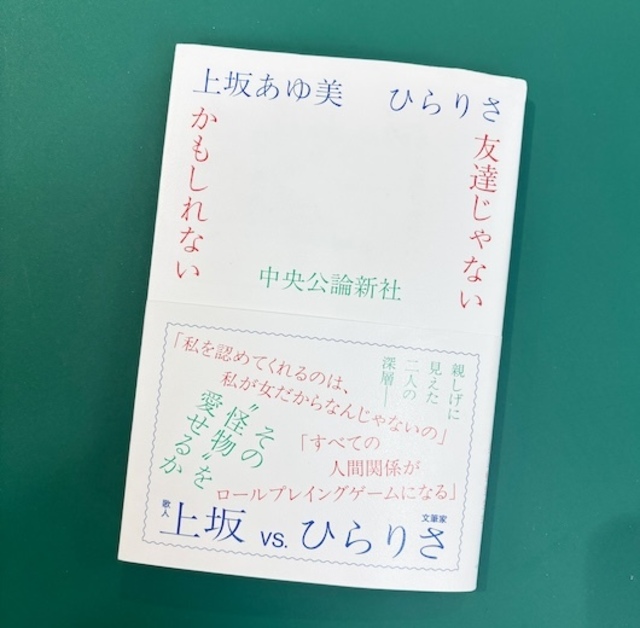 上坂あゆ美
ひらりさ
友達じゃない
かもしれない
中央公論新社
親しげに
見えた
二人の
深層――
「私を認めてくれるのは、
私が女だからなんじゃないの」
「すべての
人間関係が
ロールプレイングゲームになる」
その
〝怪物〟を
愛せるか
歌人
上坂 vs. ひらりさ
文筆家